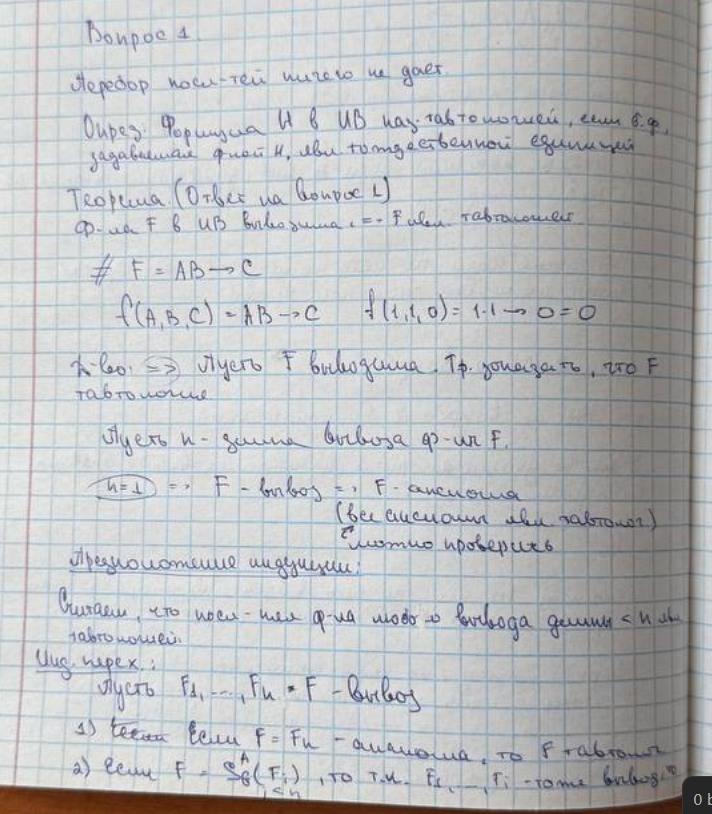 Вопрос 1.
Перебор посл-тей ничего не дает
Опред. Формула H в ИВ наз. тавтологией, если б.ф.,
задаваемая ф-лой H, явл тождественной единицей
Теорема. (Ответ на вопрос 1)
Ф-ла F в ИВ выводима <=> F явл тавтологией
# F = AB → C
f(A,B,C) = AB → C f(1,1,0) = 1·1 → 0 = 0
Д-во: => Пусть F выводима. Тр. доказать, что F
тавтология
Пусть n - длина вывода ф-лы F.
n=1 => F - вывод => F - аксиома
(все аксиомы явл тавтолог)
можно проверить
Предположение индукции:
Считаем, что посл-няя ф-ла любого вывода длины < n явл
тавтологией.
Инд. перех.:
Пусть F1, ..., Fn = F - вывод
1) Если F = Fn - аксиома, то F тавтолог
2) Если F = S^A_G (Fi), то т.к. F1, ..., Fi - тоже вывод
i < n
0 b